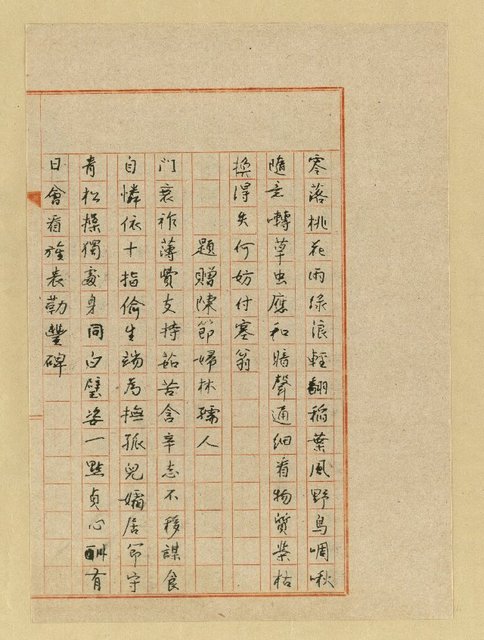 零落桃花雨綠浪輕翻稻葉風野鳥啁啾
隨意囀草虫應和暗聲通細看物質榮枯
換得失何妨付塞翁
題贈陳節婦林孺人
門衰祚薄費支持茹苦含辛志不移謀食
自憐依十指偷生端為撫孤兒孀居節守
青松操獨處身同白璧姿一點貞心酬有
日會看旌表勒豐碑